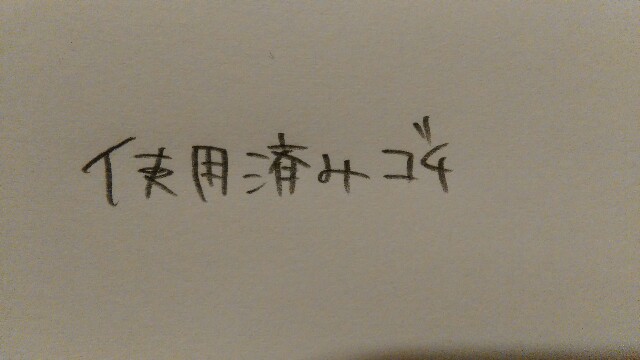 使用済みゴム